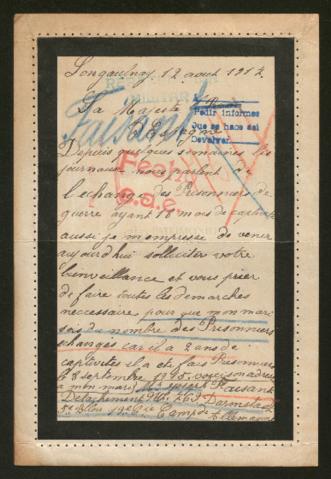 Longaulnay, 12 août 1917
Sa Majesté
d'Espagne
Pedir informes
Que se hace así
Devolver.
Faisant
Fecha
e.a.e.
Depuis quelques semaines les
journaux nous parlent de
l'echange des Prisonniers de
guerre ayant 18 mois de captivité
aussi je m'empresse de venir
aujourd'hui solliciter votre
bienveillance et vous prier
de faire toutes les demarches
necessaire pour que mon mari
sois du nombre des Prisonniers
echangés car il a 2 ans de
captivités il a été fais Prisonnier
le 8 septembre 1915 voici son adresse
a mon mari Faisant
Detachement Darmstadt
Camp de
Allemand